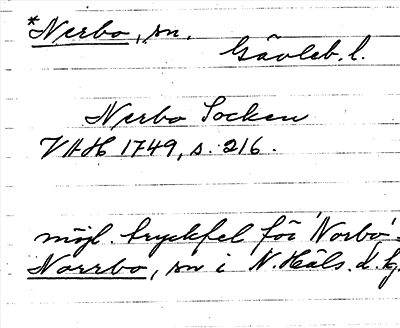 *Nerbo, sn.
Gävleb. l.
Nerbo Socken
VAH 1749, s. 216.
möjl. tryckfel för 'Norbo'=
Norrbo, sn i N. Häls. d. Lg.